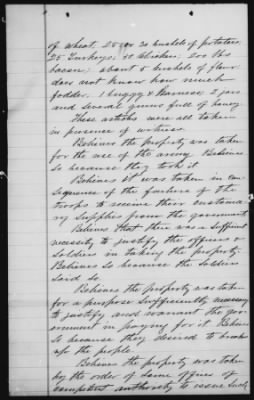 of wheat, 25 or 20 bushels of potatoes,
25 Turkeys, Chickens, 200 lbs
bacon, about 5 bushels of flour
does not know how much
fodder, 1 buggy & Harness, 2 jars
and several gums full of honey.
These articles were all taken
in presence of witness.
Believes the property was taken
for the use of the army Believes
so because they took it
Believes it was taken in con
sequence of the failure of the
troops to receive their customa
ry supplies from the government
Believes that there was a sufficient
necessity to justify the officers or
soldiers in taking the property.
Believes so because the soldiers
said so.
Believes the property was taken
for a purpose sufficiently necessary
to justify and warrant the gov
ernment in paying for it Believes
so because they desired to break
up the people
Believes the property was taken
by the order of some officer of
competent authority to issue such